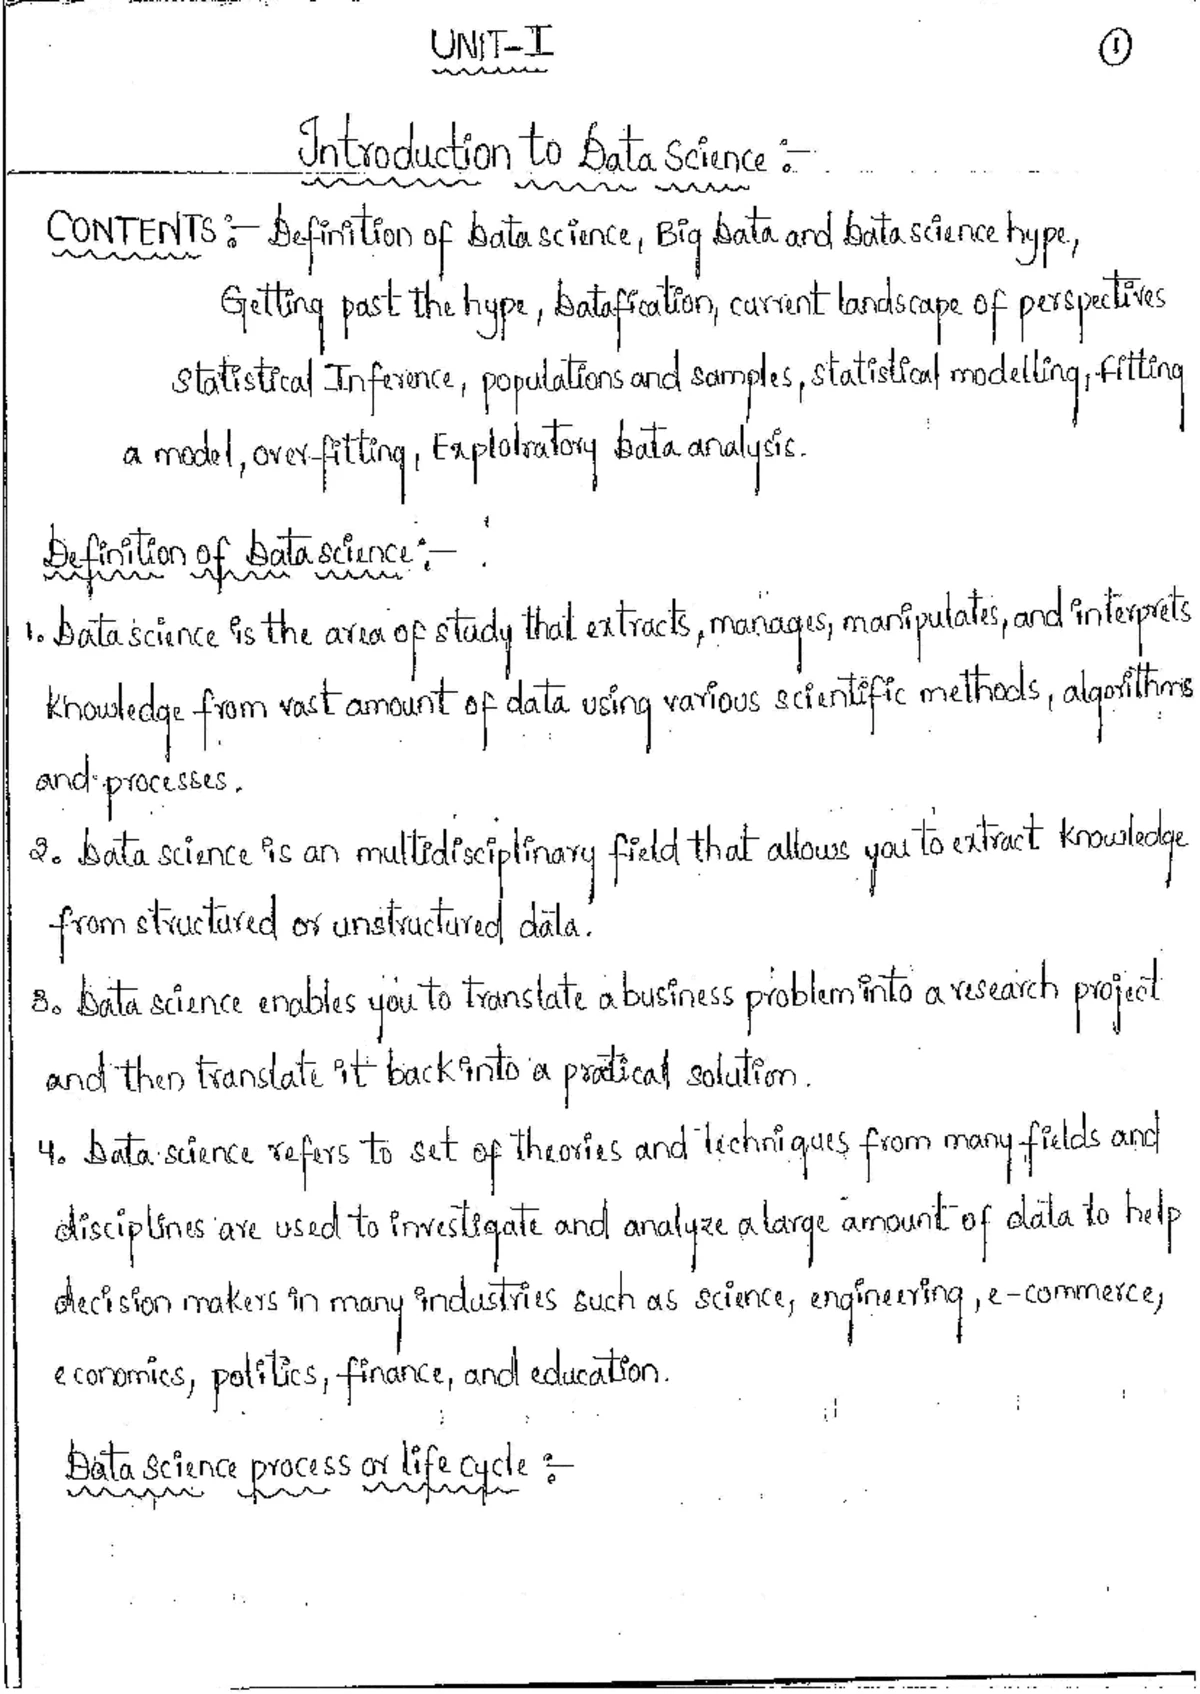 UNIT-I
1
Introduction to Data Science :-
CONTENTS :- Definition of Data science, Big Data and Data science hype,
Getting past the hype, Datafication, current landscape of perspectives
statistical Inference, populations and samples, statistical modelling, fitting
a model, over-fitting, Explolratory Data analysis.
Definition of Data science :-
1. Data science is the area of study that extracts, manages, manipulates, and interprets
knowledge from vast amount of data using various scientific methods, algorithms
and processes.
2. Data science is an multidisciplinary field that allows you to extract knowledge
from structured or unstructured data.
3. Data science enables you to translate a business problem into a research project
and then translate it back into a pratical solution.
4. Data science refers to set of theories and techniques from many fields and
disciplines are used to investigate and analyze a large amount of data to help
decision makers in many industries such as science, engineering, e-commerce,
economics, politics, finance, and education.
Data science process or life cycle :-